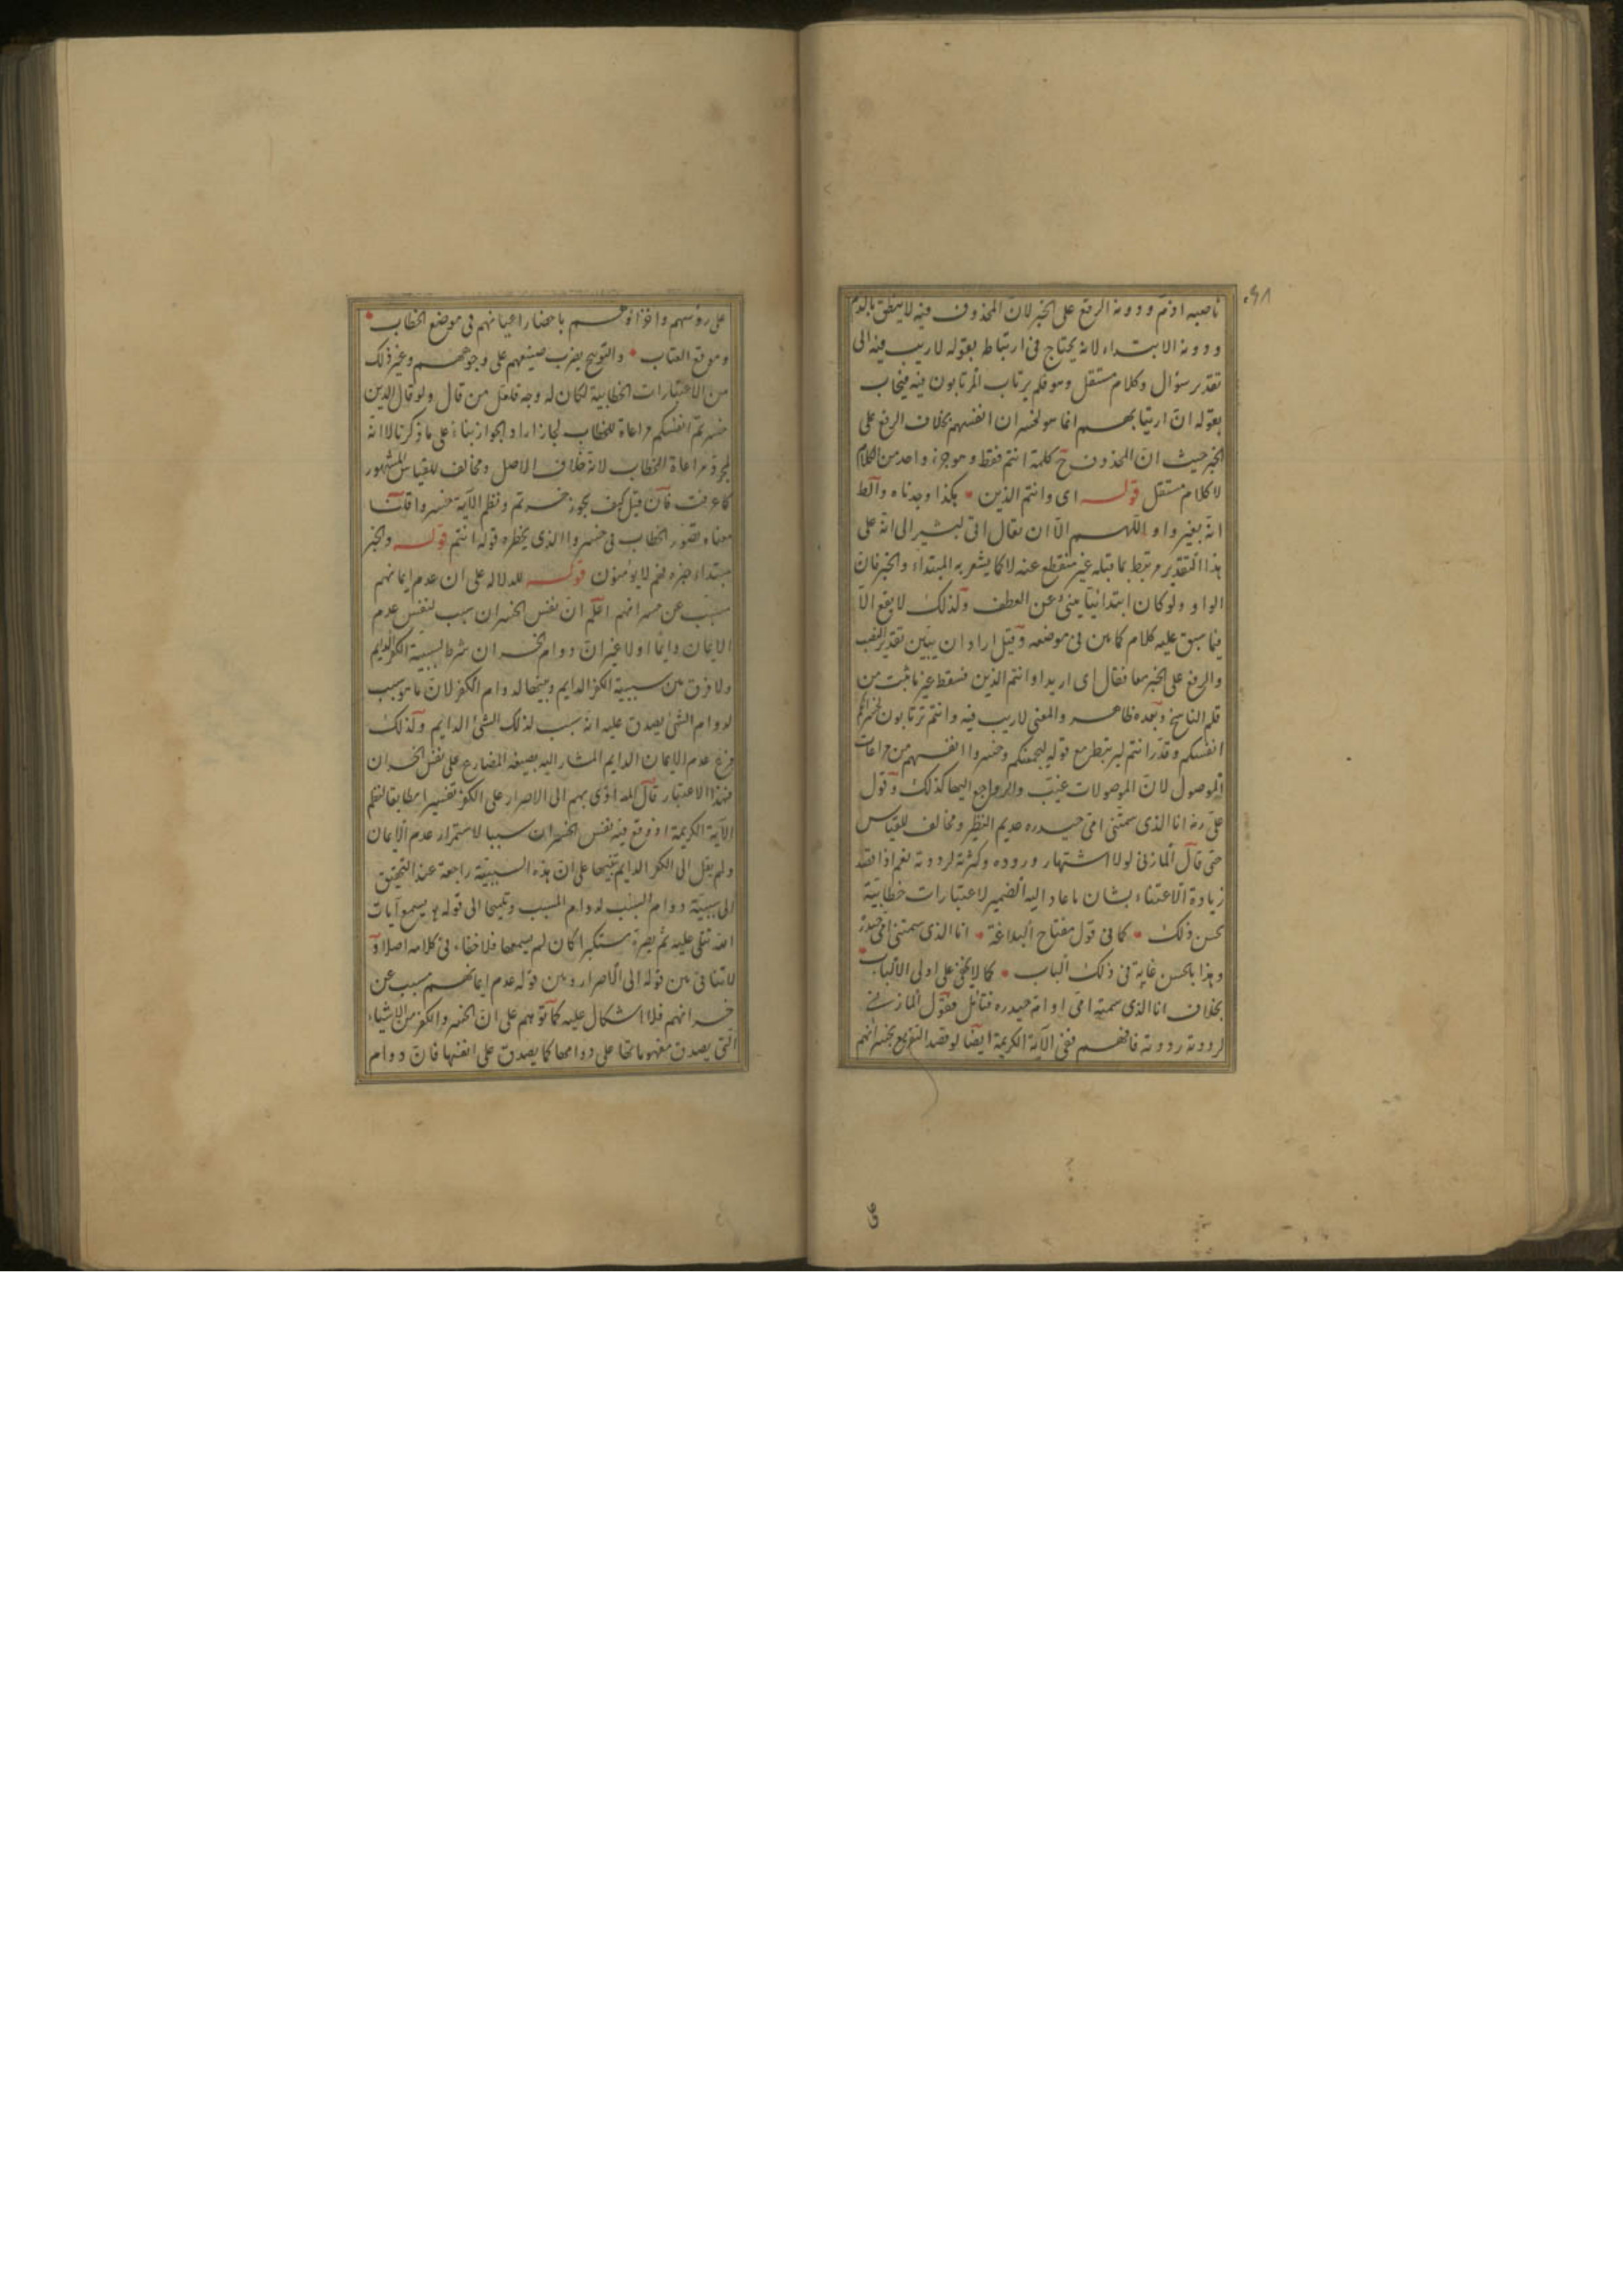 ناصبه اذم ودونه الرفع على الخبر لان المحذوف فيه لا ينطق بالذم
ودونه الابتداء لانه يحتاج فى ارتباط بقوله لا ريب فيه الى
تقدير سؤال وكلام مستقل وهو فلم يرتاب المرتابون فيه فيجاب
بقوله ان ارتيابهم انما هو لخسران انفسهم بخلاف الرفع على
الخبر حيث ان المحذوف ح كلمة انتم فقط وهو جزء واحد من الكلام
لا كلام مستقل قوله اى وانتم الذين هكذا وجدناه والظ
انه بغير واو اللهم الا ان يقال اتى ليشير الى انه على
هذا التقدير مرتبط بما قبله غير منقطع عنه لا كما يشعر به المبتداء والخبر فان
الواو ولو كان ابتدائيا ينبئ عن العطف ولذلك لا يقع الا
فيما سبق عليه كلام كما بين فى موضعه وقيل اراد ان يبين تقدير النصب
والرفع على الخبر معا فقال اى اريد او انتم الذين فسقط غير ما ثبت من
قلم الناسخ وبعده ظاهر والمعنى لا ريب فيه وانتم ترتابون لخسرانكم
انفسكم وقدر انتم ليرتبط مع قوله ليجمعنكم وخسروا انفسهم من مراعات
الموصول لان الموصولات غيب والرواجع اليها كذلك وقول
على رضه انا الذى سمتنى امى حيدره عديم النظير ومخالف للقياس
حتى قال المازنى لولا اشتهار وروده وكثرته لرددته نعم اذا قصد
زيادة الاعتناء بشان ما عاد اليه الضمير لاعتبارات خطابية
يحسن ذلك كما فى قول مفتاح البلاغة انا الذى سمتنى امى حيدره
وهذا بالحسن غاية فى ذلك الباب كما لا يخفى على اولى الالباب
بخلاف انا الذى سميته امى او ام حيدره فتأمل فقول المازنى
لرددته رددته فافهم ففى الآية الكريمة ايضا لو قصد التقريع بخسرانهم
على رؤسهم واخزاؤهم باحضار اعيانهم فى موضع الخطاب
وموقع العتاب والتوبيخ بضرب صنيعهم على وجوههم وغير ذلك
من الاعتبارات الخطابية لكان له وجه فلعل من قال ولو قال الذين
خسرتم انفسكم مراعاة للخطاب لجاز اراد الجواز بناء على ما ذكرنا لا انه
لمجرد مراعاة الخطاب لانه خلاف الاصل ومخالف للقياس المشهور
كما عرفت فان قيل كيف يجوز خسرتم ونظم الآية خسروا قلنا
معناه تصور الخطاب فى خسروا الذى يخطره قوله انتم قوله والخبر
مبتداء خبره فهم لا يؤمنون قوله للدلاله على ان عدم ايمانهم
مسبب عن خسرانهم اعلم ان نفس الخسران سبب لنفس عدم
الايمان دايما اولا غير ان دوام الخسران شرط لسببية الكفر الدايم
ولا فرق بين سببية الكفر الدايم وبينها لدوام الكفر لان ما هو سبب
لدوام الشئ يصدق عليه انه سبب لذلك الشئ الدايم ولذلك
فرع عدم الايمان الدايم المشار اليه بصيغة المضارع على نفس الخسران
فبهذا الاعتبار قال المص ادى بهم الى الاصرار على الكفر تفسيرا مطابقا لنظم
الآية الكريمة اذ وقع فيه نفس الخسران سببا لاستمرار عدم الايمان
ولم يقل الى الكفر الدايم تنبيها على ان هذه السببية راجعة عند التحقيق
الى سببية دوام السبب لدوام المسبب وتلميحا الى قوله يسمع آيات
الله تتلى عليه ثم يصر مستكبرا كان لم يسمعها فلا خفاء فى كلامه اصلا و
لا تنافى بين قوله الى الاصرار وبين قوله عدم ايمانهم مسبب عن
خسرانهم فلا اشكال عليه كما توهم على ان الخسر والكفر من الاشياء
التى يصدق مفهوماتها على دوامها كما يصدق على انفسها فان دوام